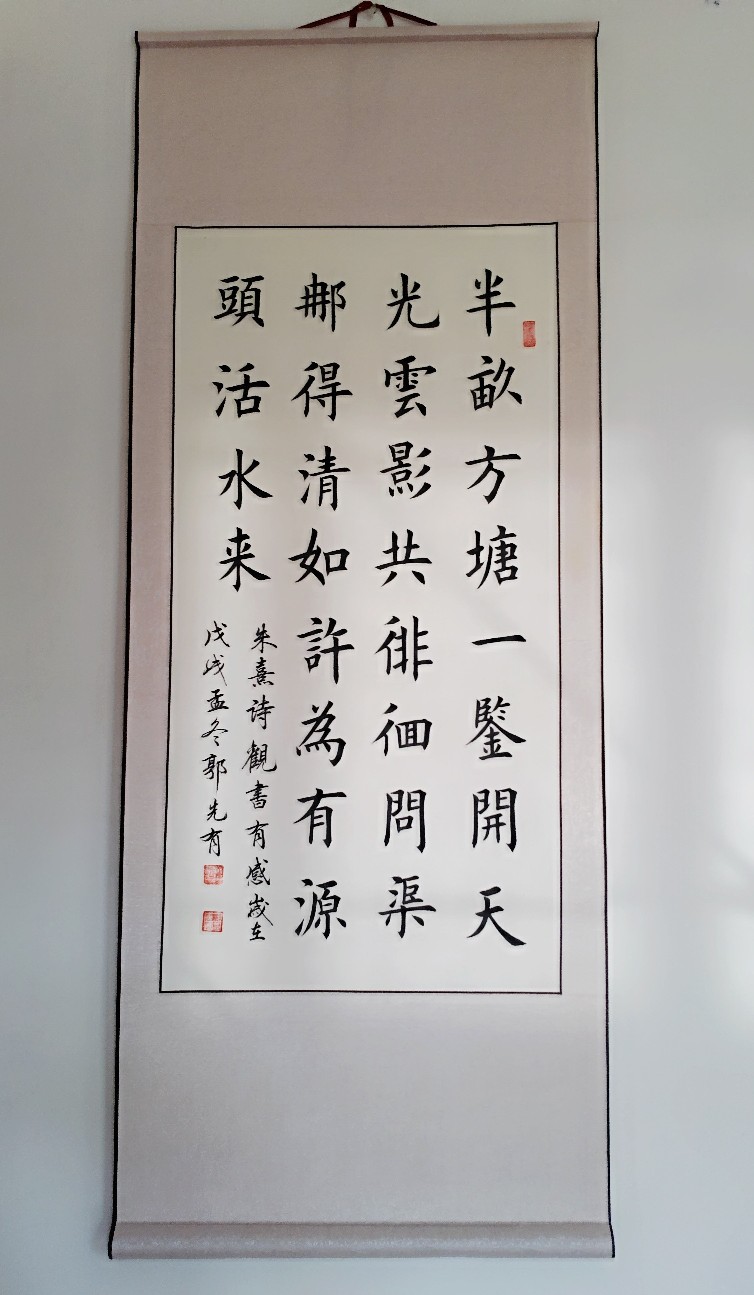 半畝方塘一鑒開天
光雲影共徘徊問渠
那得清如許為有源
頭活水来
朱熹诗觀書有感歲在
戊戌孟冬郭先有